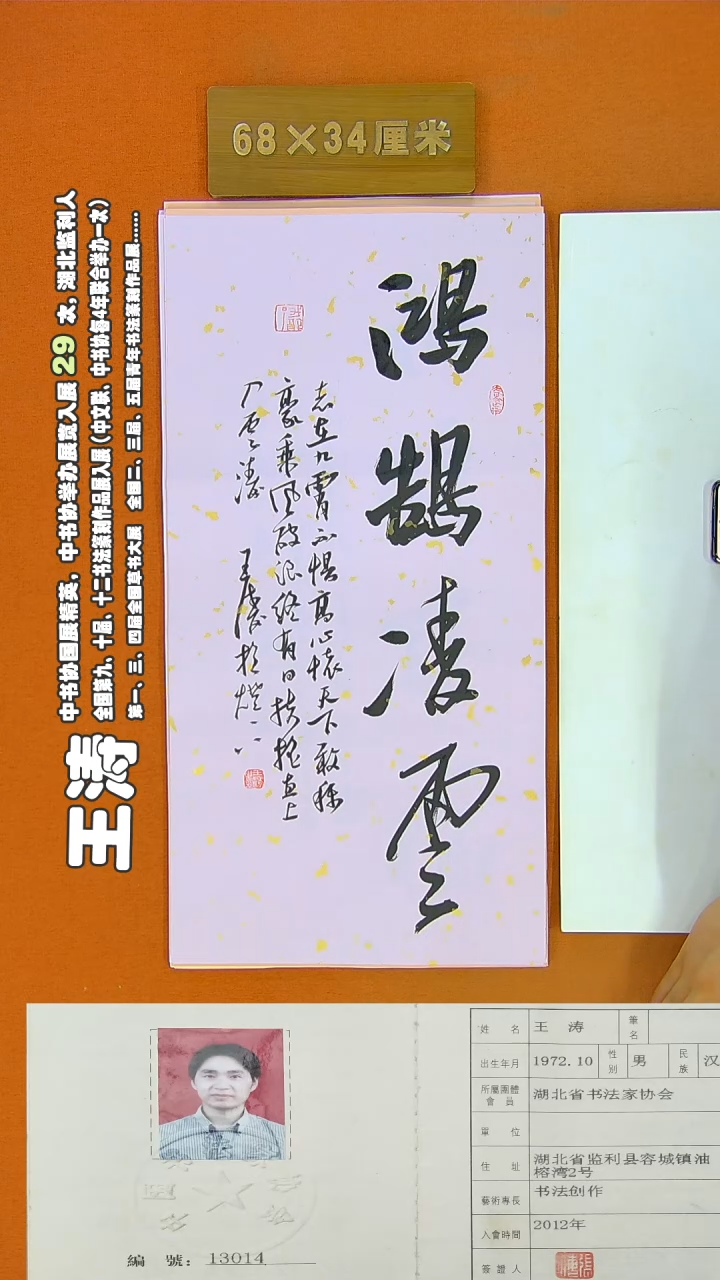 68×34厘米
王涛
中书协国展精英，中书协举办展赛入展 29 次，湖北监利人
全国第九、十届、十二书法篆刻作品展入展（中文联、中书协每4年联合举办一次）
第一、三、四届全国草书大展 全国二、三届、五届青年书法篆刻作品展......
鸿鹄凌雲
志在九霄不惧高心怀天下敢称
豪乘风破浪终有日扶摇直上
入云涛 王涛
姓名 王涛 筆名
出生年月 1972.10 性别 男 民族 汉
所屬團體會員 湖北省书法家协会
單位
住址 湖北省监利县容城镇油榕湾2号
藝術專長 书法创作
入會時間 2012年
簽證人
編號：13014